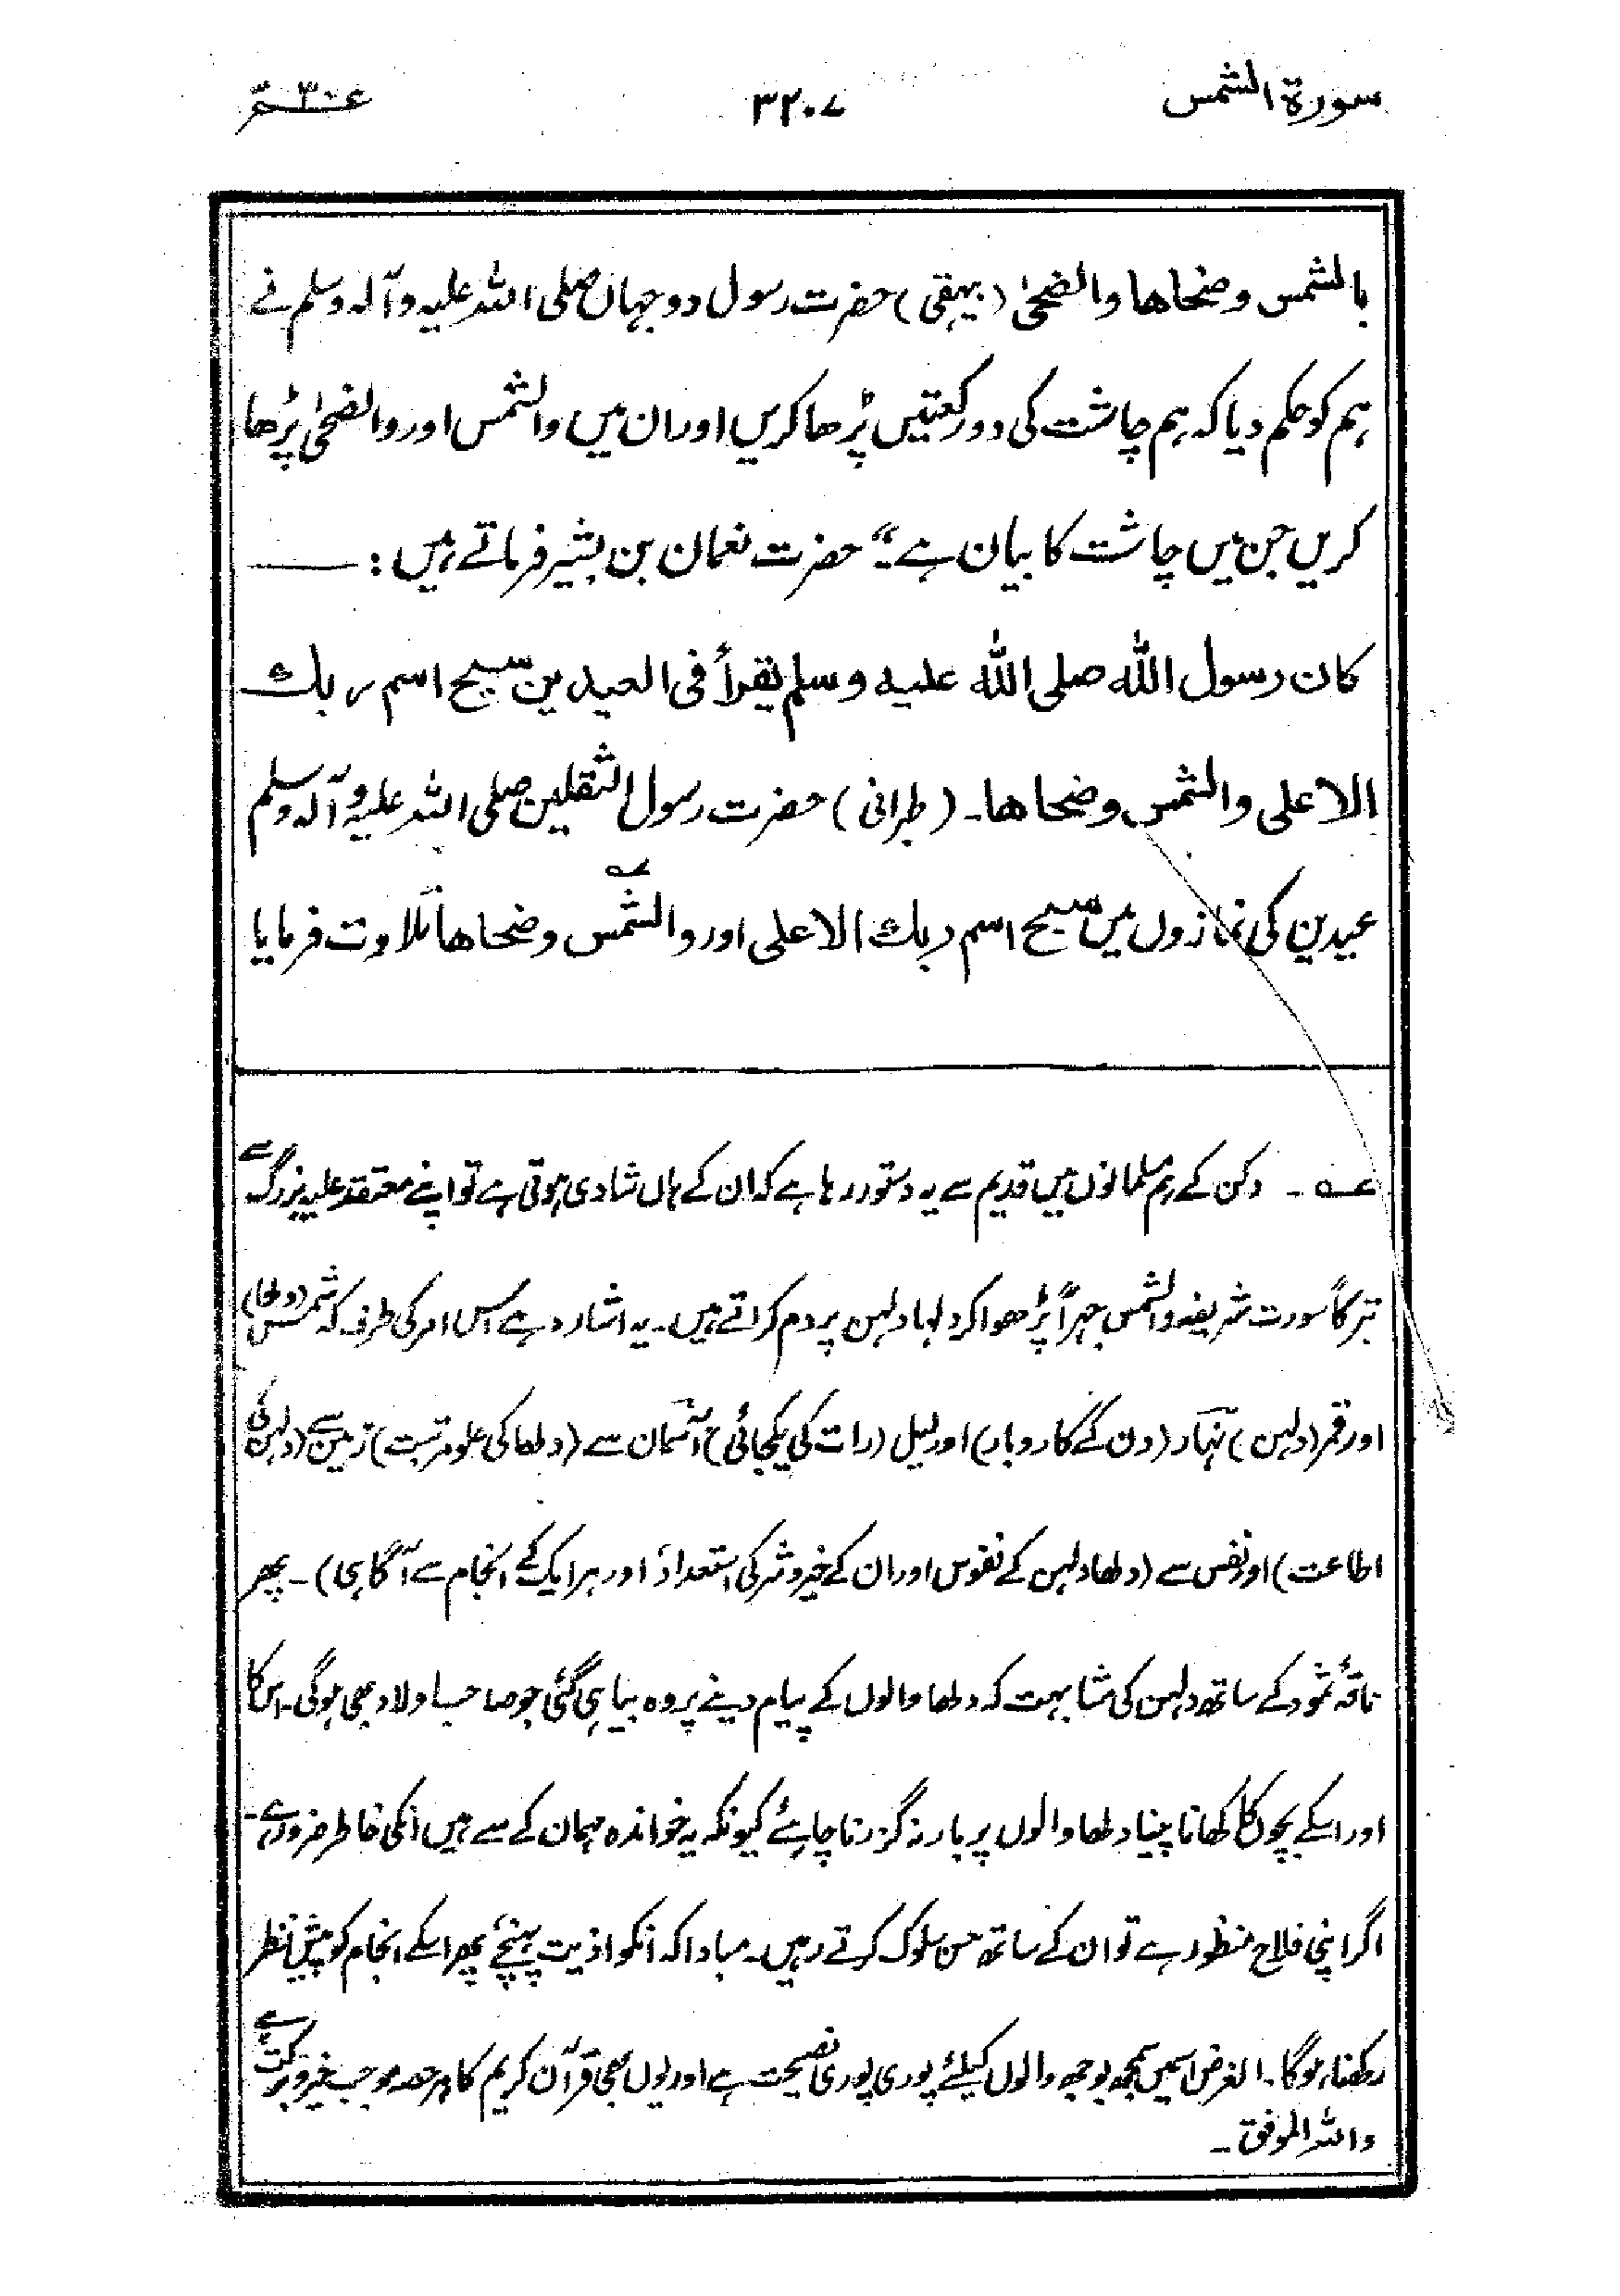 سورة الشمس
۳۲۰۷
عم ۳۰
بالشمس وضحاها والضحیٰ (بیہقی) حضرت رسول دوجہاں صلی اللہ علیہ وآلہ وسلم نے
ہم کو حکم دیا کہ ہم چاشت کی دو رکعتیں پڑھا کریں اور ان میں والشمس اور والضحیٰ پڑھا
کریں جن میں چاشت کا بیان ہے۔" حضرت نعمان بن بشیر فرماتے ہیں :
کان رسول الله صلی الله علیه وسلم یقرأ فی العیدین سبح اسم ربك
الاعلی والشمس وضحاها۔ (طبرانی) حضرت رسول الثقلین صلی اللہ علیہ وآلہ وسلم
عیدین کی نمازوں میں سبح اسم ربك الاعلی اور والشمس وضحاها تلاوت فرمایا
عہ
عہ ۔ دکن کے ہم مسلمانوں میں قدیم سے یہ دستور رہا ہے کہ ان کے ہاں شادی ہوتی ہے تو اپنے معتقد علیہ بزرگ سے
تبرکاً سورت شریفہ والشمس جہراً پڑھوا کر دلہا دلہن پر دم کراتے ہیں۔ یہ اشارہ ہے اس امر کی طرف کہ شمس (دولھا)
اور قمر (دلہن) نہار (دن کے کاروبار) اور لیل (رات کی یکجائی) آسمان سے (دلھا کی علو مرتبت) زمین سے (دلہن کی
اطاعت) اور نفس سے (دلھا دلہن کے نفوس اور ان کے خیر و شر کی استعداد اور ہر ایک کے انجام سے آگاہی)۔ پھر
ناقۂ ثمود کے ساتھ دلہن کی مشابہت کہ دلھا والوں کے پیام دینے پر وہ بیاہی گئی جو صاحب اولاد بھی ہوگی۔ اس کا
اور اسکے بچوں کا کھانا پینا دلھا والوں پر بار نہ گزرنا چاہئے کیونکہ یہ خواندہ مہمان کے سے ہیں انکی خاطر ضرور ہے۔
اگر اپنی فلاح منظور ہے تو ان کے ساتھ حسن سلوک کرتے رہیں۔ مبادا کہ انکو اذیت پہنچے پھر اسکے انجام کو پیش نظر
رکھنا ہوگا۔ الغرض اسمیں سمجھ بوجھ والوں کیلئے پوری پوری نصیحت ہے اور یوں بھی قرآن کریم کا ہر حصہ موجب خیر و برکت ہے
واللہ الموفق ۔